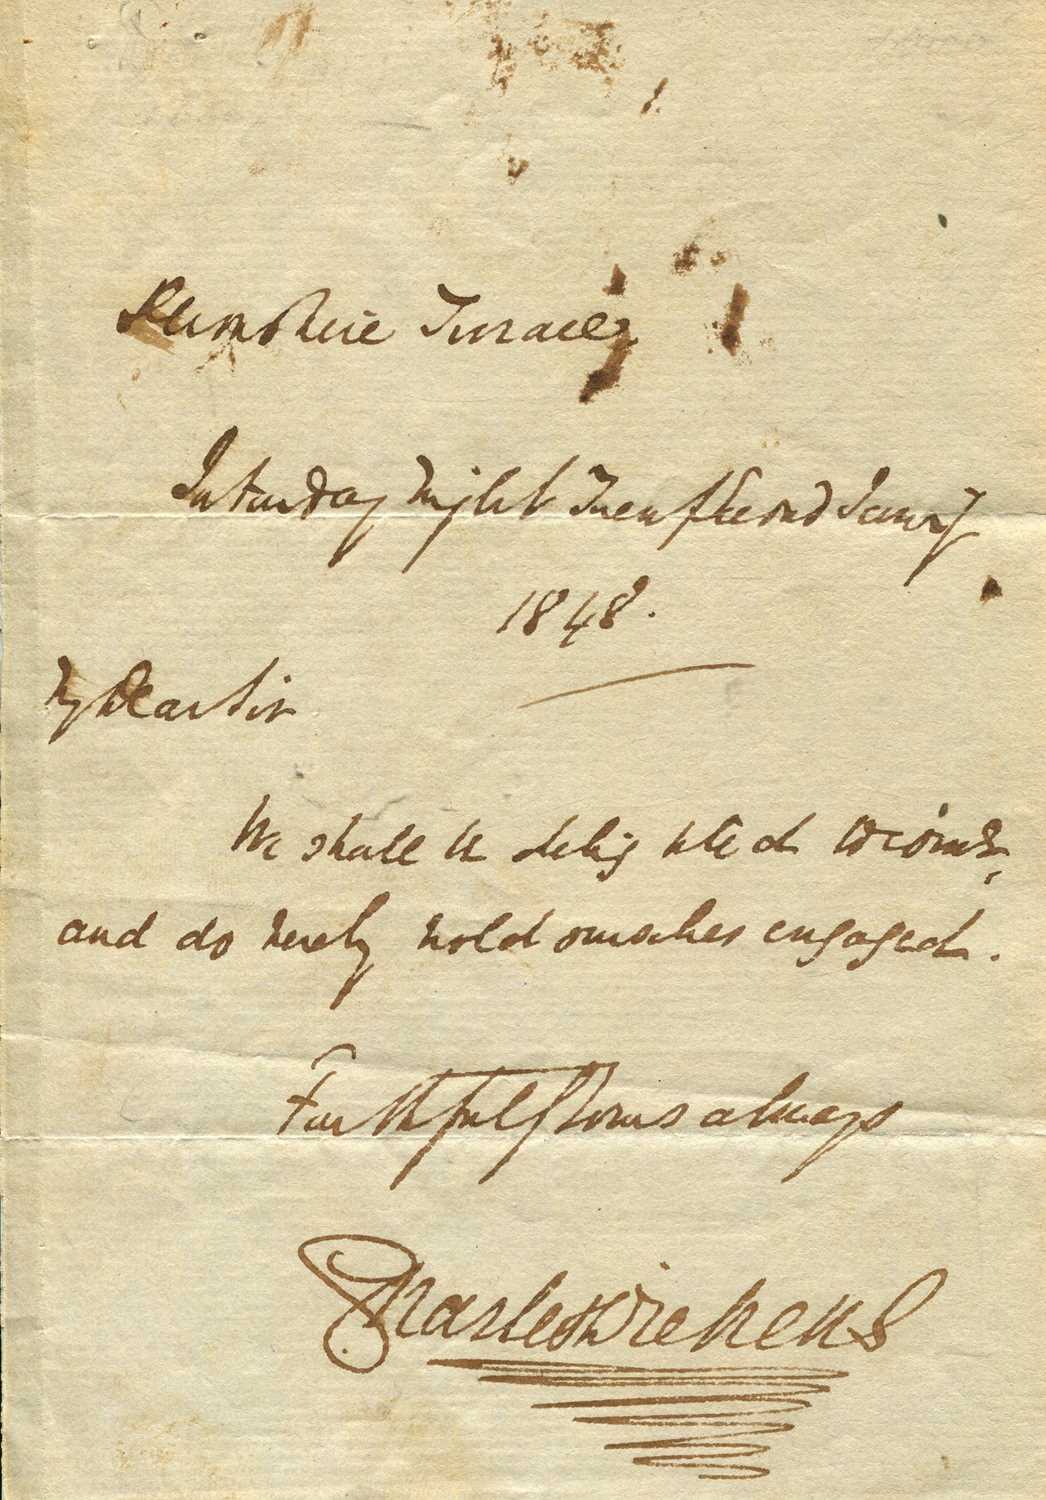 Devonshire Terrace
Saturday Night Twenty Second Jany
1848.
My Dear Sir
We shall be delighted to come,
and do hereby hold ourselves engaged.
Faithfully Yours always
Charles Dickens